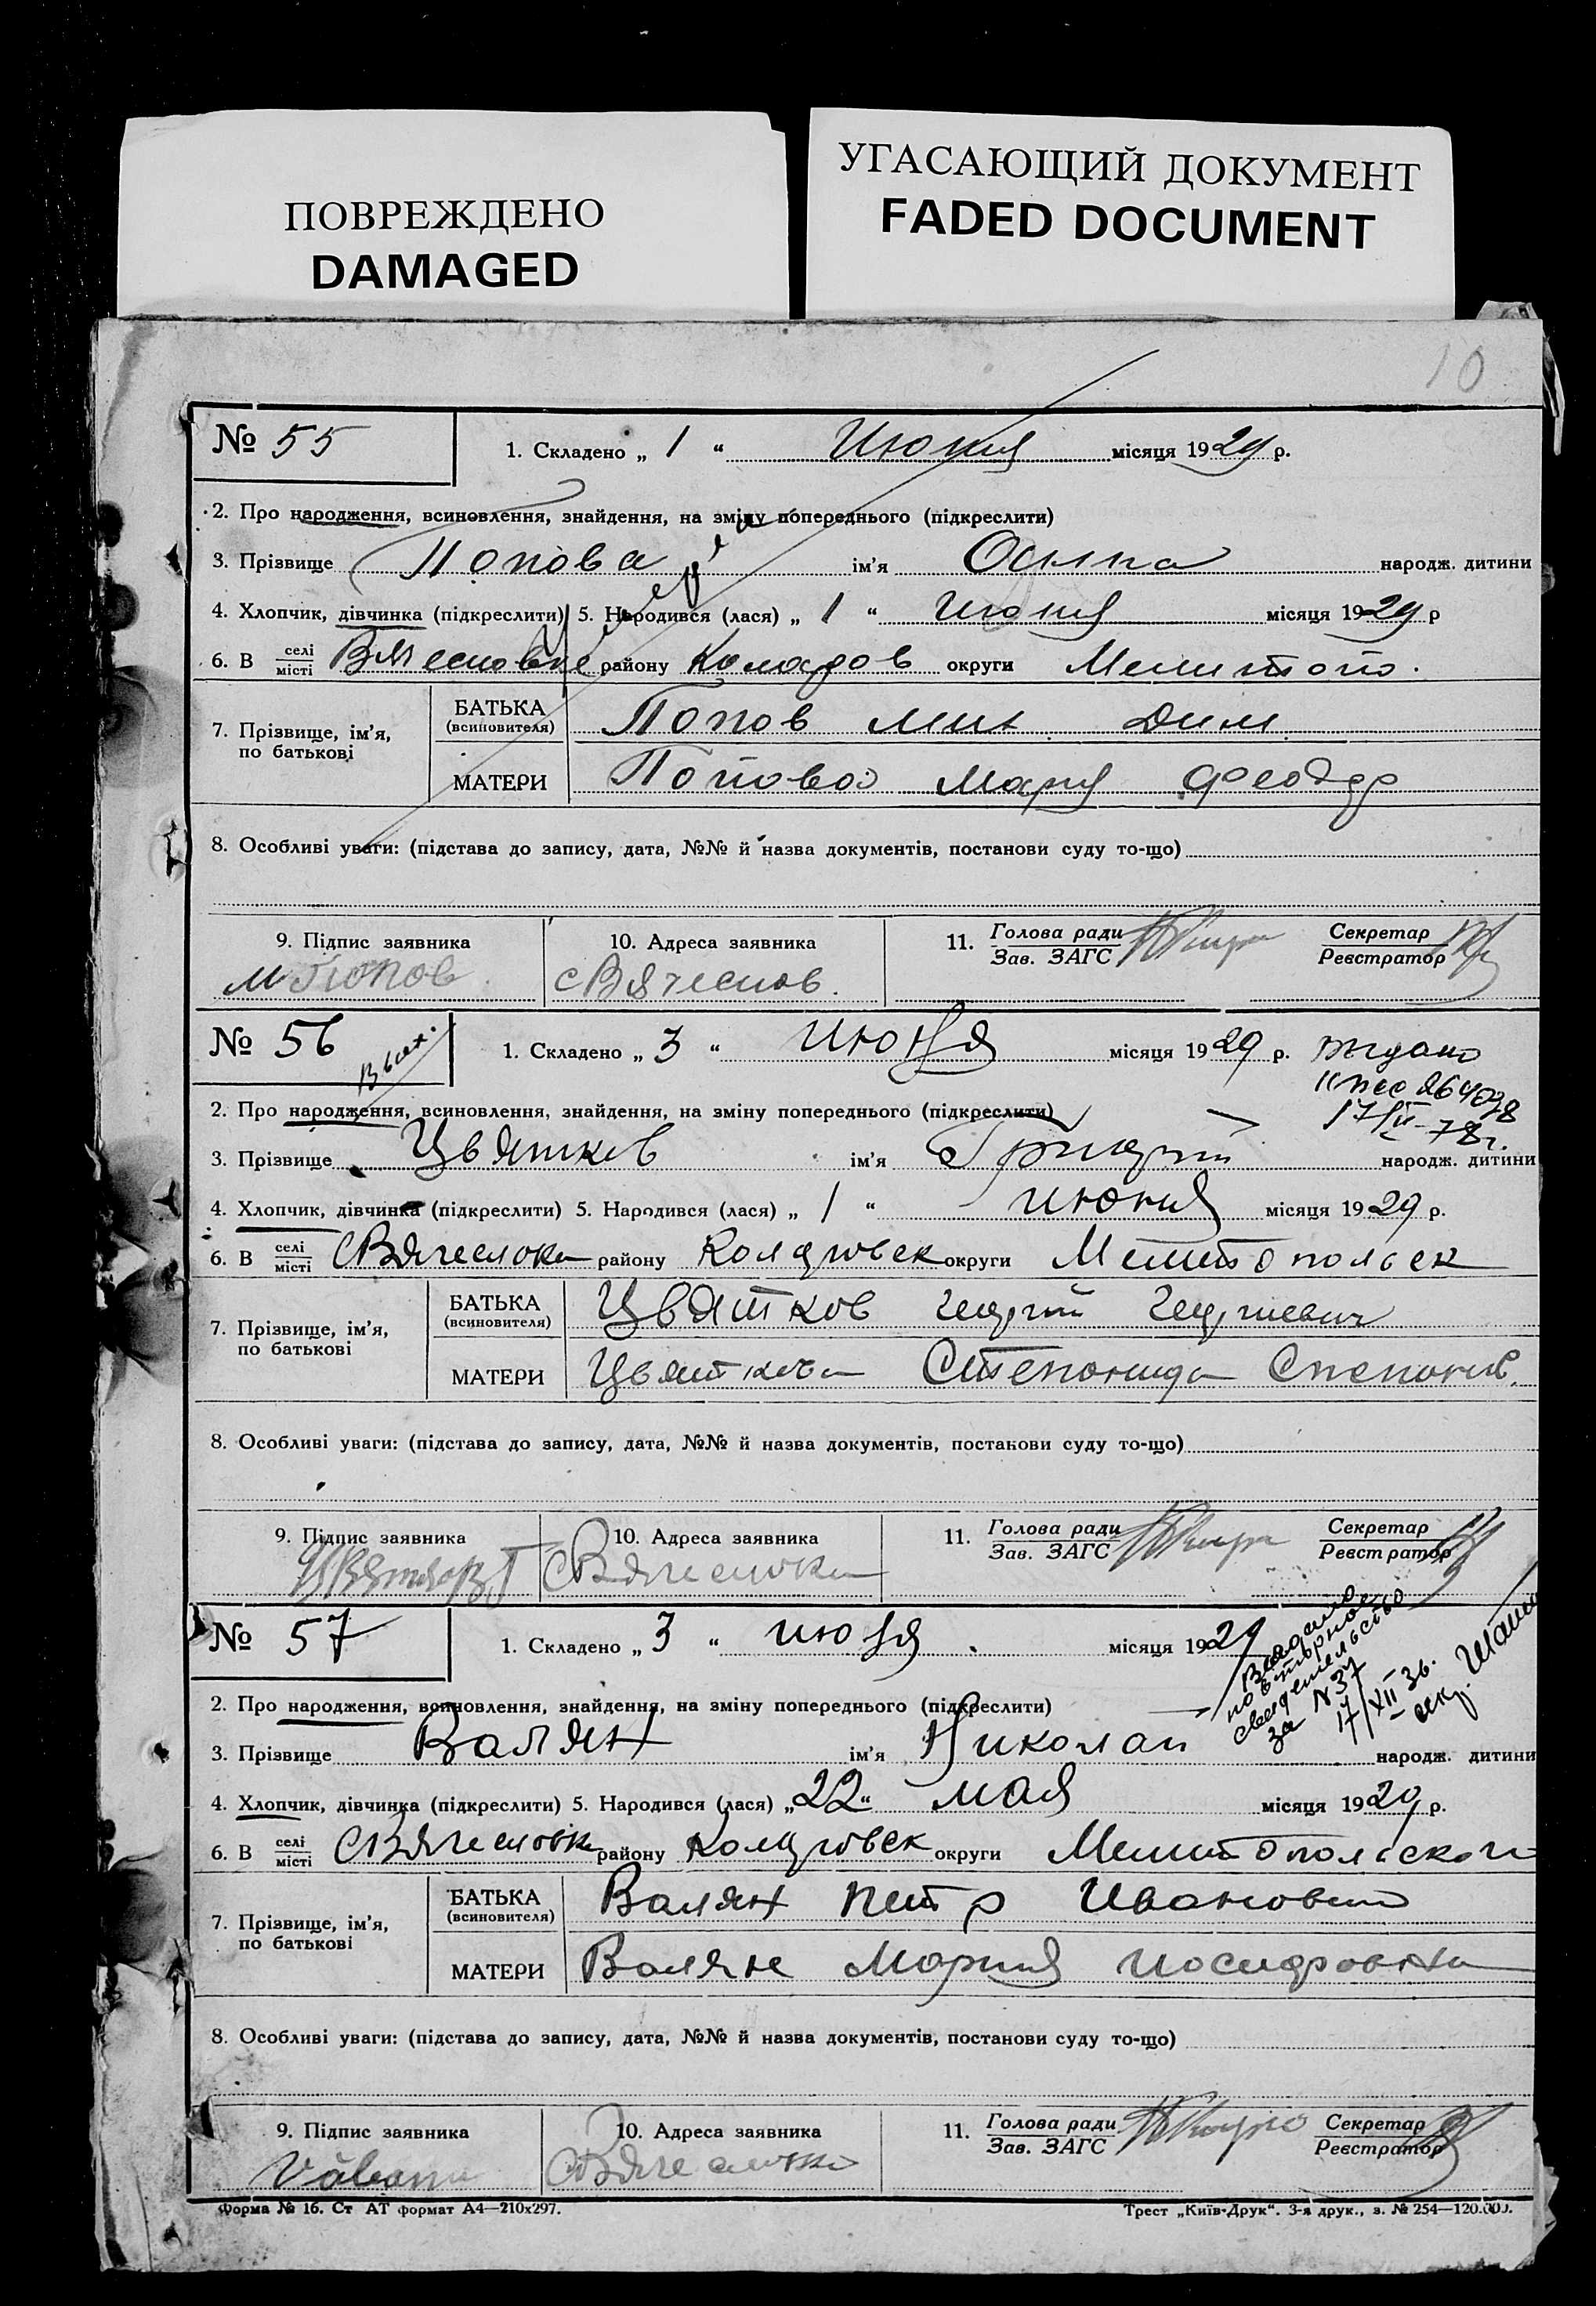 ПОВРЕЖДЕНО
DAMAGED
УГАСАЮЩИЙ ДОКУМЕНТ
FADED DOCUMENT
10
№ 55
1. Складено „ 1 “ Июния місяця 1929 р.
2. Про народження, всиновлення, знайдення, на зміну попереднього (підкреслити)
3. Прізвище Попова ім'я народж. дитини
4. Хлопчик, дівчинка (підкреслити) 5. Народився (лася) „ 1 “ Июния місяця 1929 р
6. В селі місті району округи Мелитопо.
7. Прізвище, ім'я, по батькові
БАТЬКА (всиновителя) Попов Мих Дим
МАТЕРИ Попово Феодор
8. Особливі уваги: (підстава до запису, дата, №№ й назва документів, постанови суду то-що)
9. Підпис заявника 10. Адреса заявника 11. Голова ради Зав. ЗАГС Секретар Реєстратор
М Попов
№ 56
1. Складено „ 3 “ июня місяця 1929 р.
Выдано
17/II-78г.
2. Про народження, всиновлення, знайдення, на зміну попереднього (підкреслити)
3. Прізвище Цвятков ім'я народж. дитини
4. Хлопчик, дівчинка (підкреслити) 5. Народився (лася) „ 1 “ июния місяця 1929 р.
6. В селі місті району округи Мелитопольск
7. Прізвище, ім'я, по батькові
БАТЬКА (всиновителя) Цвятков Георгий Георгиевич
МАТЕРИ Цвяткова Степонида Степонов.
8. Особливі уваги: (підстава до запису, дата, №№ й назва документів, постанови суду то-що)
9. Підпис заявника 10. Адреса заявника 11. Голова ради Зав. ЗАГС Секретар Реєстратор
№ 57
1. Складено „ 3 “ июня місяця 1929
Выдано
повторное
свидетельство
за № 37
17/XII 36.
2. Про народження, всиновлення, знайдення, на зміну попереднього (підкреслити)
3. Прізвище Валян ім'я Николай народж. дитини
4. Хлопчик, дівчинка (підкреслити) 5. Народився (лася) „ 22 “ мая місяця 1929 р.
6. В селі місті району округи Мелитопольского
7. Прізвище, ім'я, по батькові
БАТЬКА (всиновителя) Валян Петр Иванович
МАТЕРИ Валян Мария Иосифовна
8. Особливі уваги: (підстава до запису, дата, №№ й назва документів, постанови суду то-що)
9. Підпис заявника 10. Адреса заявника 11. Голова ради Зав. ЗАГС Секретар Реєстратор
Форма № 16. Ст АТ формат А4—210х297.
Трест „Київ-Друк“. 3-я друк., з. № 254—120.000.